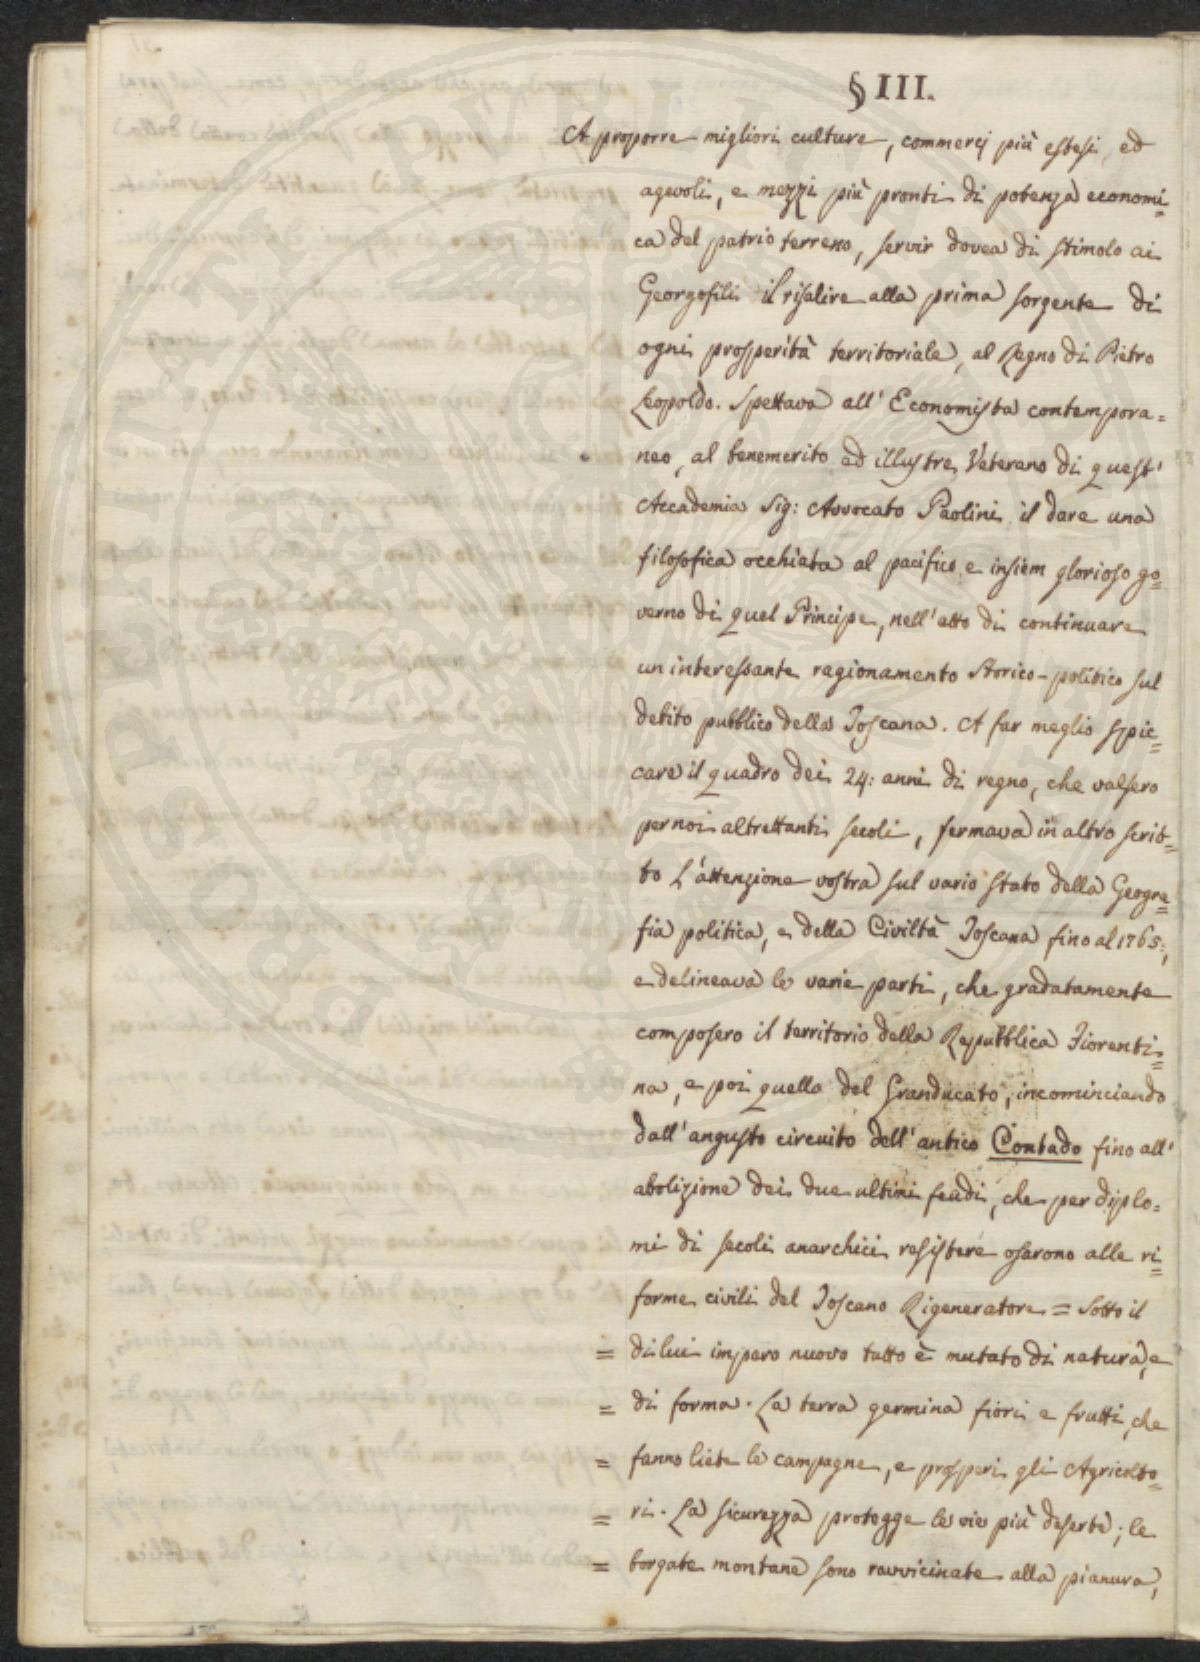 § III.
A proporre migliori culture, commerci più estesi, ed
agevoli, e mezzi più pronti di potenza economi=
ca del patrio terreno, servir dovea di stimolo ai
Georgofili il risalire alla prima sorgente di
ogni prosperità territoriale, al Regno di Pietro
Leopoldo. Spettava all' Economista contempora=
neo, al benemerito ed illustre Veterano di quest'
Accademia Sig: Avvocato Paolini il dare una
filosofica occhiata al pacifico e insiem glorioso go=
verno di quel Principe, nell'atto di continuare
un interessante ragionamento Storico-politico sul
debito pubblico della Toscana. A far meglio spic=
care il quadro dei 24: anni di regno, che valsero
per noi altrettanti secoli, fermava in altro scrit=
to L'attenzione vostra sul vario stato della Geogra=
fia politica, e della Civiltà Toscana fino al 1765:,
e delineava le varie parti, che gradatamente
composero il territorio della Repubblica Fiorenti=
na, e poi quello del Granducato, incominciando
dall'angusto circuito dell'antico Contado fino all'
abolizione dei due ultimi feudi, che per diplo=
mi di secoli anarchici resistere osarono alle ri=
forme civili del Toscano Rigeneratore = Sotto il
= di lui impero nuovo tutto è mutato di natura, e
= di forma. La terra germina fiori e frutti, che
= fanno liete le campagne, e prosperi gli Agricolto=
= ri. La sicurezza protegge le vie più deserte; le
= borgate montane sono ravvicinate alla pianura,